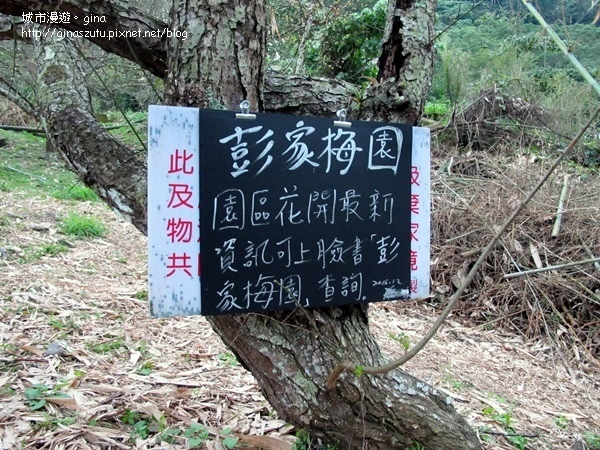 城市漫遊。gina
http://ginaszutu.pixnet.net/blog
彭家梅園
園區花開最新
資訊可上臉書「彭
家梅園」查詢.
此及
物
共
及棄
家
境
製